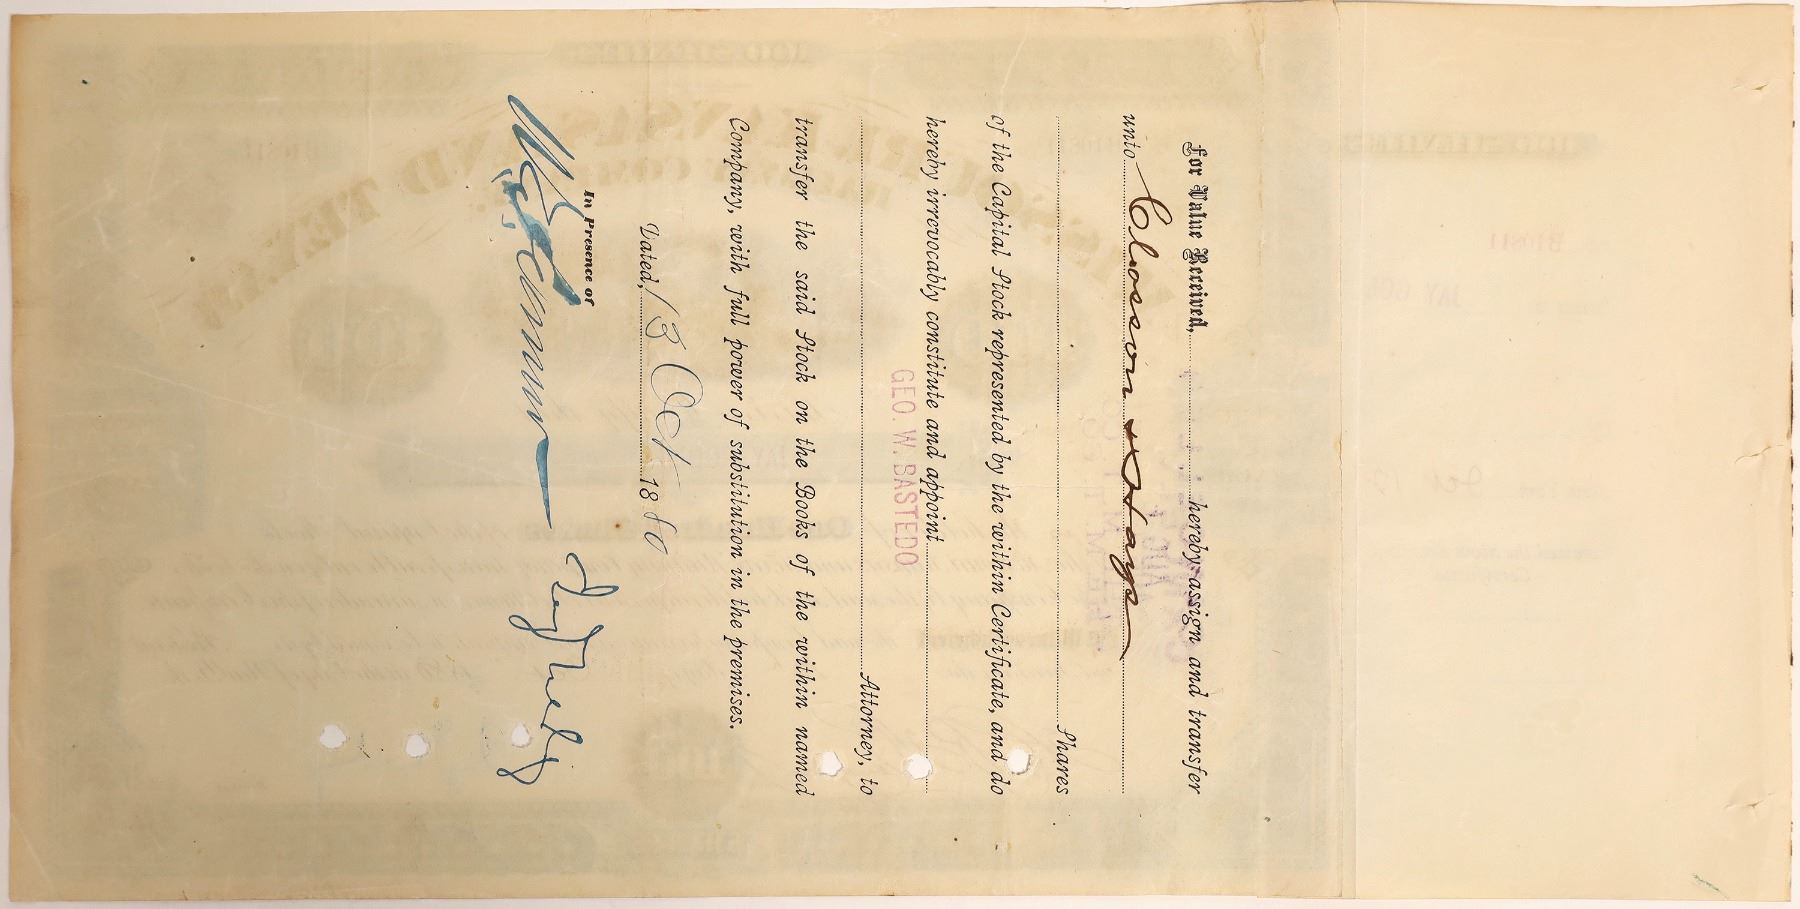 For Value Received, hereby assign and transfer
unto Closson & Hays
Shares
of the Capital Stock represented by the within Certificate, and do
hereby irrevocably constitute and appoint
GEO. W. BASTEDO
Attorney, to
transfer the said Stock on the Books of the within named
Company, with full power of substitution in the premises.
Dated, 13 Oct 1880
In Presence of
Jay Gould